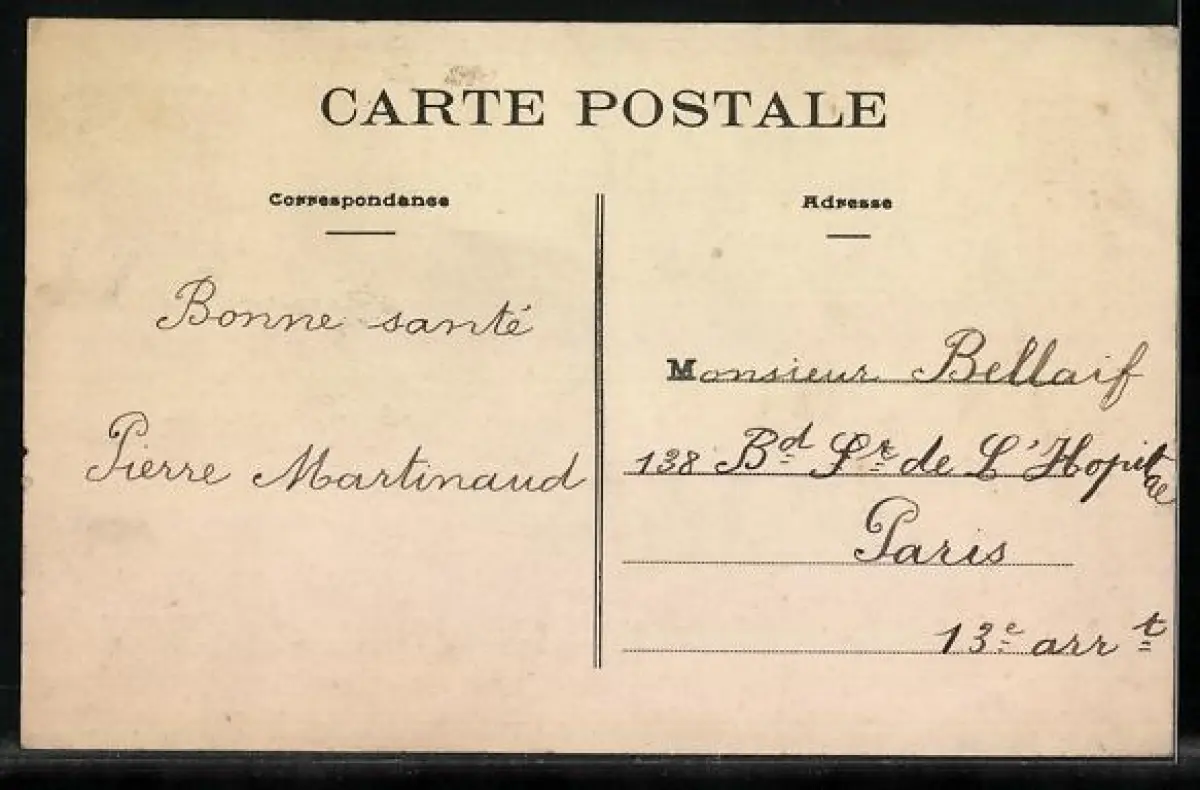 CARTE POSTALE
Correspondance
Adresse
Bonne santé
Pierre Martinaud
Monsieur Bellaif
138 Bd Sr de L'Hopital
Paris
13e arrt